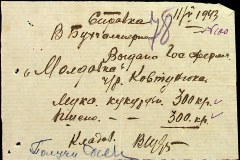 Справка 11/V 1943
В Бухгалтерию 78
Выдано Госферме
"Молдовка"
ч/р. Ковтунюка.
Мука. кукуруз. 300 кг.
Пшено. — 300. кг.
Кладов.
Получил